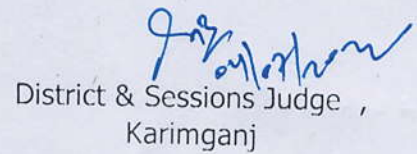 District & Sessions Judge ,
Karimganj